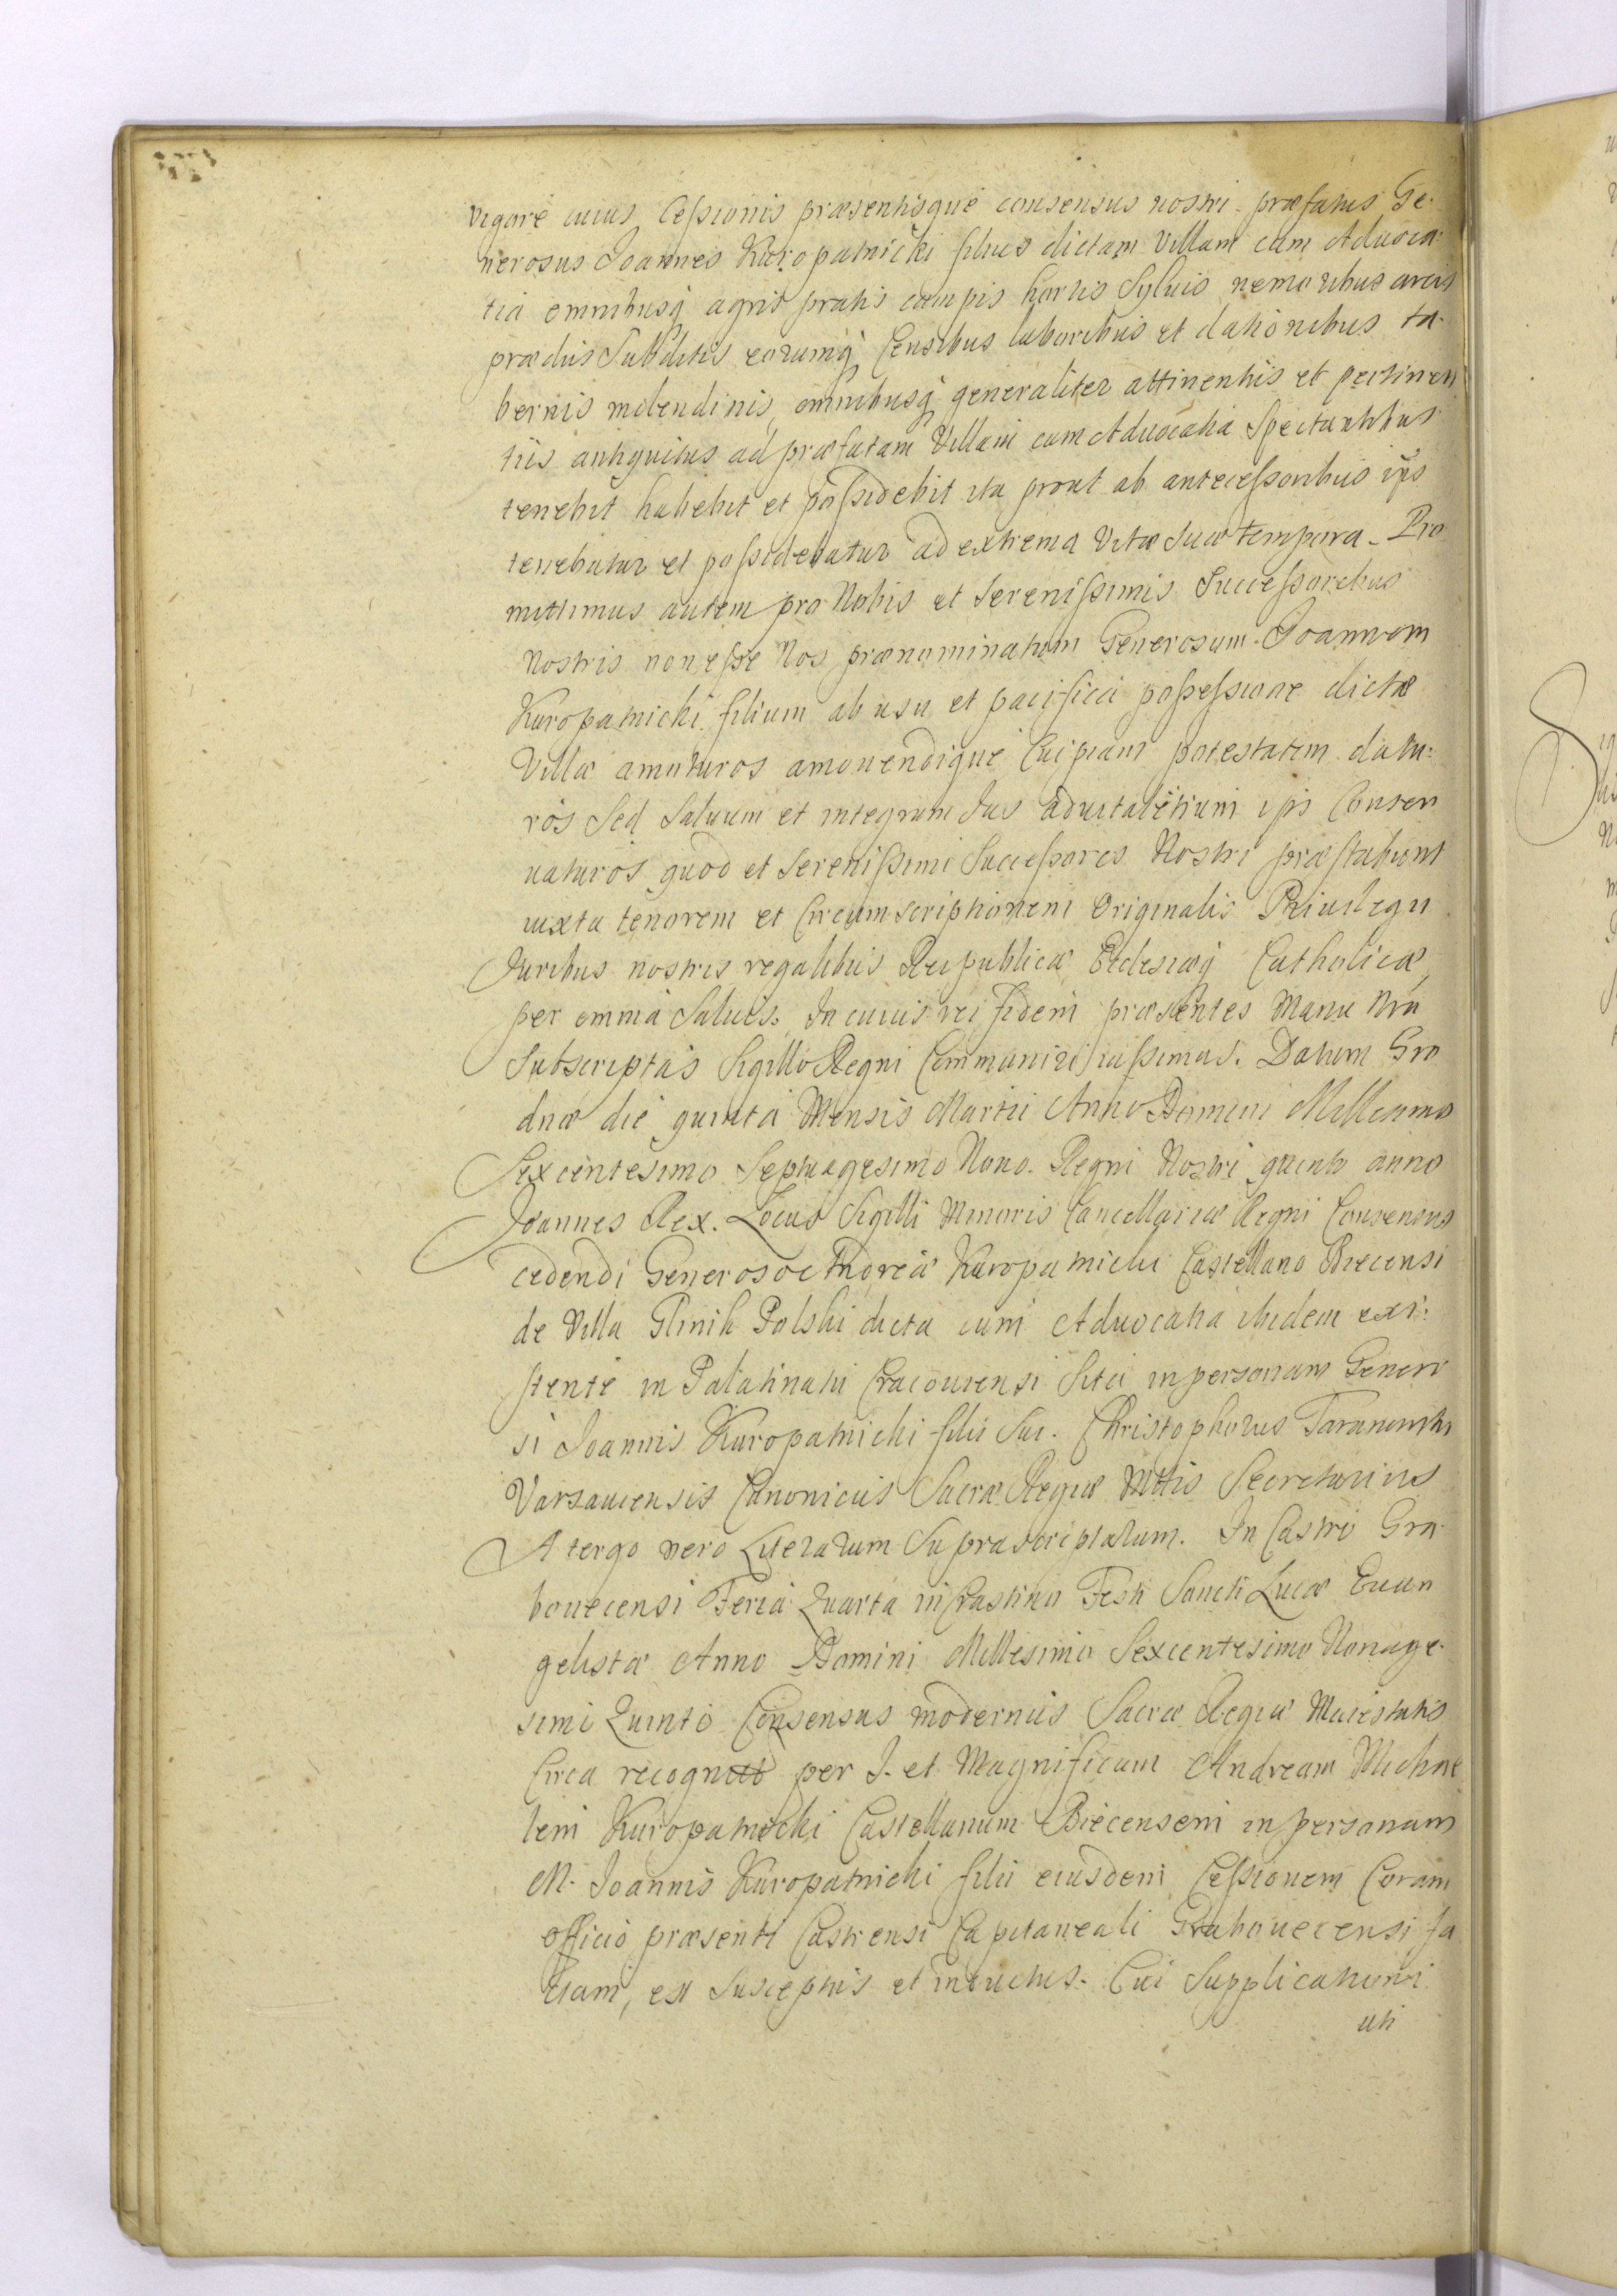 vigore cuius Cessionis præsentisque consensus nostri præfatus Ge-
nerosus Joannes Kuropatnicki filius dictam Villam cum Aduoca-
tia omnibusq agris pratis campis hortis Syluis nemoribus areis
prædiis Subditis eorumq Censibus laboribus et dationibus ta-
bernis molendinis, omnibusq generaliter attinentiis et pertinen
tiis antiquitus ad præfatam Villam cum Aduocatia Spectantibus
tenebit habebit et possidebit ita prout ab antecessoribus ips
tenebatur et possidebatur ad extrema Vitæ Suæ tempora. Pro
mittimus autem pro Nobis et Serenissimis Successoribus
Nostris non esse Nos prænominatum Generosum Joannem
Kuropatnicki filium ab usu et pacifica possessione dictæ
Villæ amoturos amouendique Cuipiam potestatem datu-
ros Sed Saluum et integrum Jus aduitalitium ips Conser
uaturos quod et Serenissimi Successores Nostri præstabunt
iuxta tenorem et Circumscriptionem Originalis Priuilegii
Juribus nostris regalibus Reipublicæ Eclesiæq Catholicæ
per omnia Saluis. In cuius rei fidem præsentes Manu Nra
Subscriptas Sigillo Regni Communiri iussimus. Datum Gro
dnæ die quinta Mensis Martii Anno Domini Millesimo
Sexcentesimo Septuagesimo Nono. Regni Nostri quinto anno
Joannes Rex. Locus Sigilli Minoris Cancellariæ Regni Consensus
cedendi Generoso Andreæ Kuropatnicki Castellano Biecensi
de Villa Glinik Polski dicta cum Aduocatia ibidem exi-
stente in Palatinatu Cracouiensi Sita in personam Genero
si Joannis Kuropatnicki filii Sui. Christophorus Taranowski
Varsauiensis Canonicus Sacræ Regiæ Mttis Secretarius
A tergo vero Literarum Suprascriptarum. In Castro Gra-
bouecensi Feria Quarta in Crastino Festi Sancti Lucæ Euan
gelistæ Anno Domini Millesimo Sexcentesimo Nonage-
simi Quinto Consensus modernus Sacræ Regiæ Maiestatis
Circa recognitō per I. et Magnificum Andream Michae
lem Kuropatnicki Castellanum Biecensem in personam
M. Joannis Kuropatnicki filii eiusdem Cessionem Coram
officio præsenti Castrensi Capitaneali Grabouecensi fa
ctam, est Susceptus et inductus. Cui Supplicationi
uti